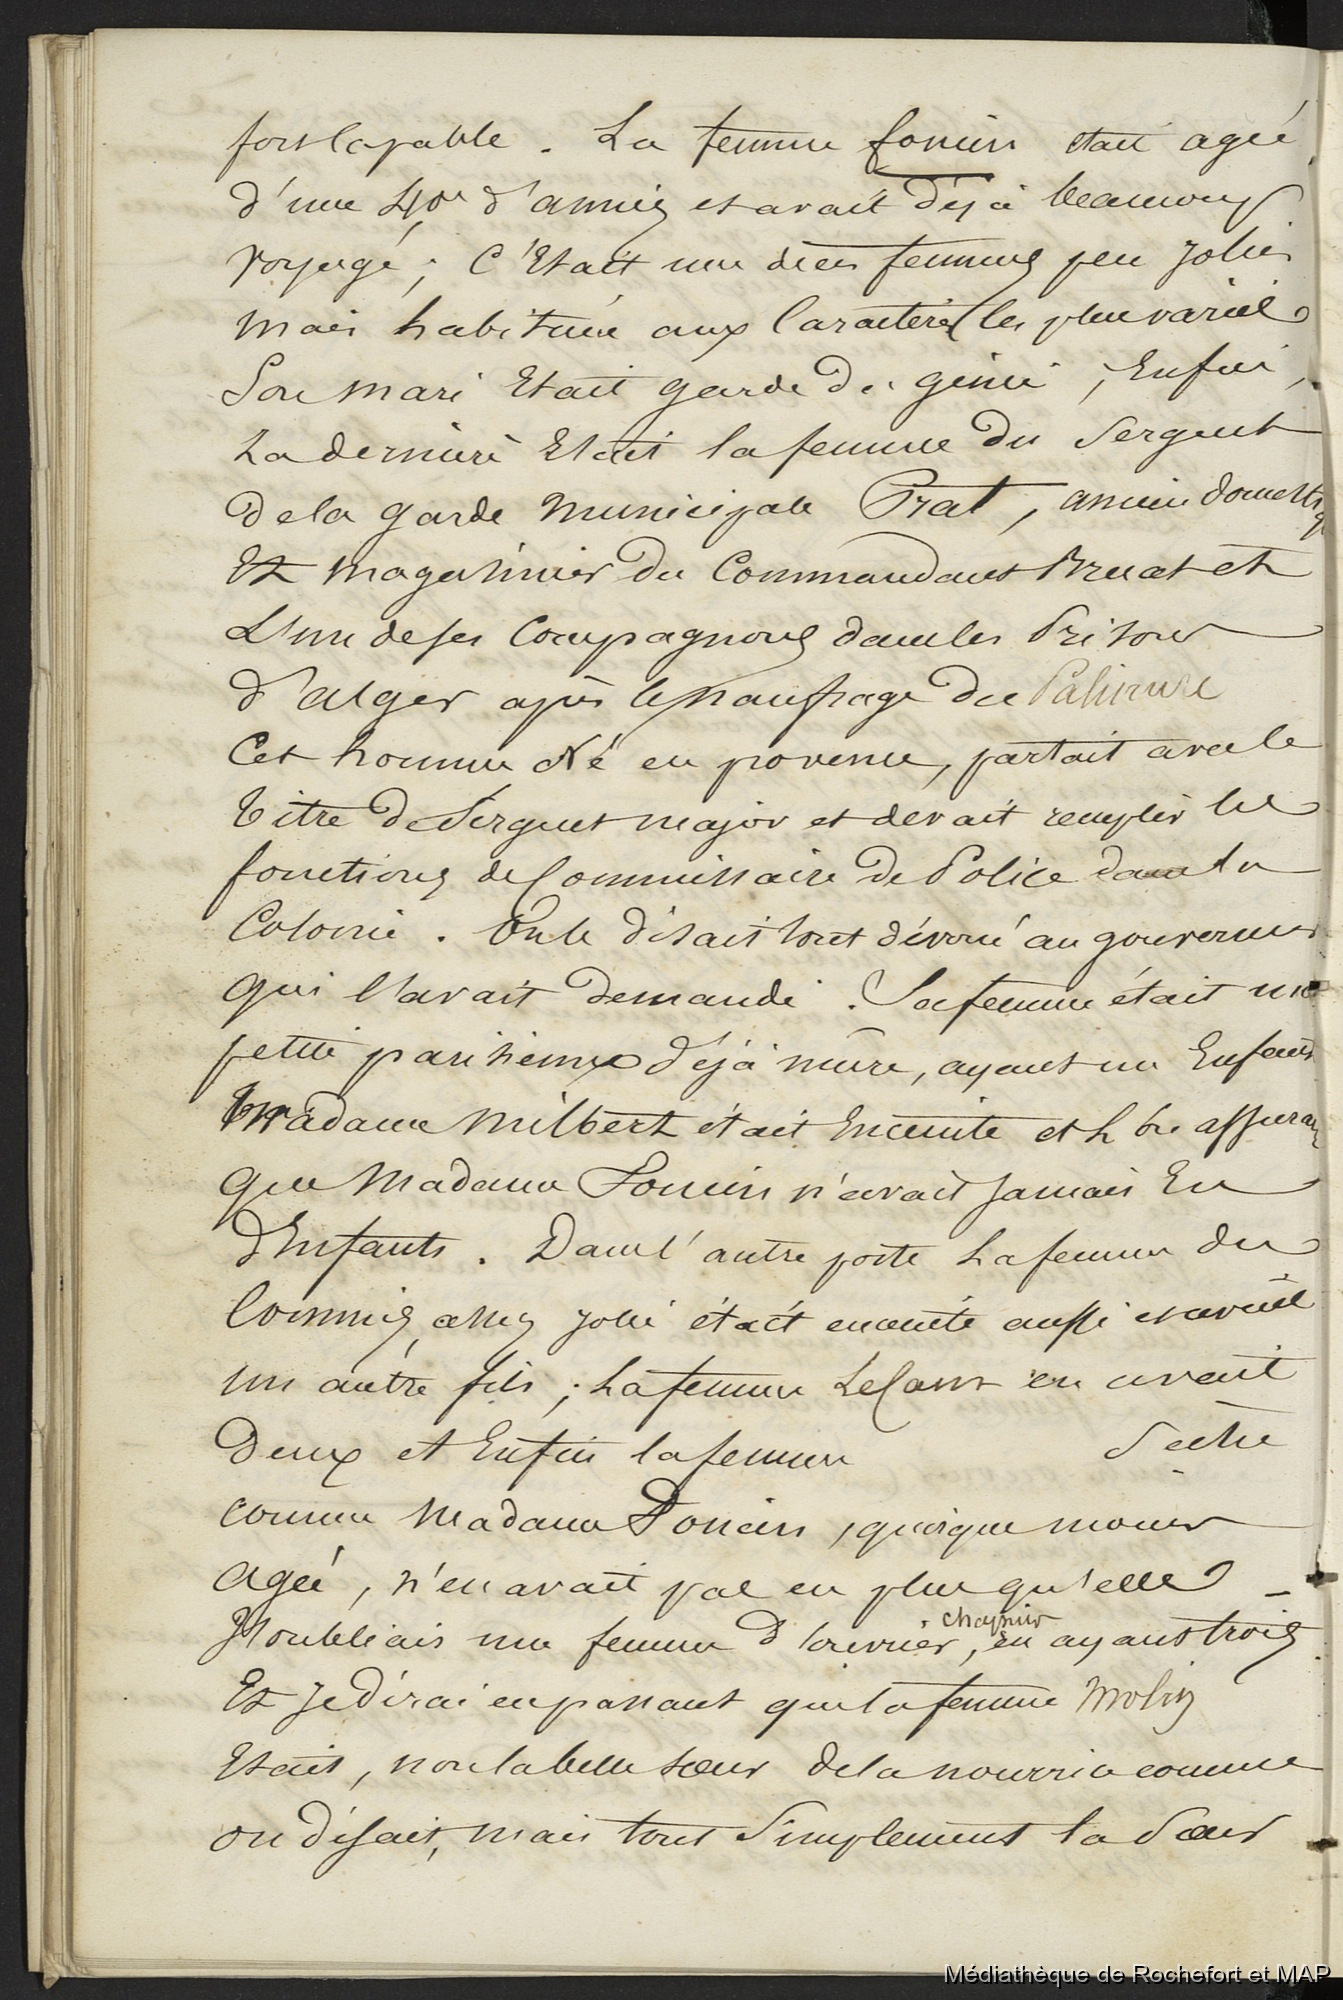 fort capable. La femme fonein était agée
d'une 40e d'années et avait déjà beaucoup
voyagé; C'Etait une des femmes peu jolies
mais habituée aux Caractères les plus variés
Son mari Etait garde du génie, Enfin,
La dernière Etait la femme du Sergent
de la garde Municipale Prat, ancien domestiq
Et magasinier du Commandant Bruat et
L'un de ses Compagnons dans les Prisons
d'alger après le naufrage du
Cet homme Né en provence, partait avec le
titre de Sergent major et devait remplir les
fonctions de Commissaire de Police dans la
Colonie. On le disait tout dévoué au gouverneur
qui l'avait demandé. Sa femme était une
petite parisienne déjà mûre, ayant un Enfant
Madame Milbert était Enceinte et h assurait
que Madame Fonein n'avait jamais Eu
d'Enfants. Dans l'autre poste La femme du
Commis, assez jolie était enceinte aussi et avait
un autre fils; La femme en avait
deux et Enfin la femme
comme Madame Fonein, quoique moins
agée, n'en avait pas eu plus qu'elle
J'oubliais une femme d'ouvrier, en ayant trois
Et je dirai en passant que la femme
Etait, non la belle soeur de la nourrice comme
on disait, mais tout Simplement la Soeur
Médiathèque de Rochefort et MAP